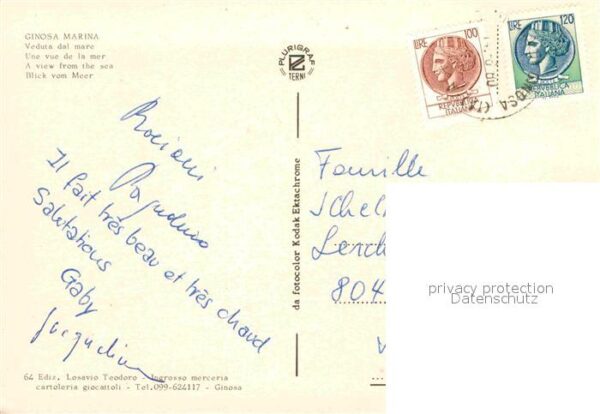 GINOSA MARINA
Veduta dal mare
Une vue de la mer
A view from the sea
Blick vom Meer
PLURIGRAF
TERNI
LIRE 100
REPVBBLICA
ITALIANA
LIRE 120
REPVBBLICA
ITALIANA
Il fait très beau et très chaud
Salutations
Gaby
Jacqueline
da fotocolor Kodak Ektachrome
Famille
804
privacy protection
Datenschutz
64 Ediz. Losavio Teodoro - Ingrosso merceria
cartoleria giocattoli - Tel. 099-624117 - Ginosa